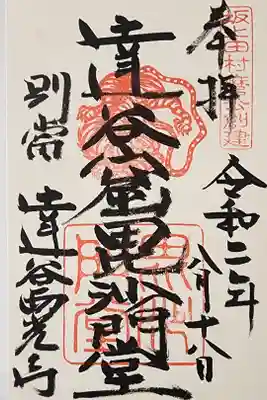 坂上田村麿公創建
奉拝
令和二年
八月十八日
達谷窟毘沙門堂
別當
達谷西光寺